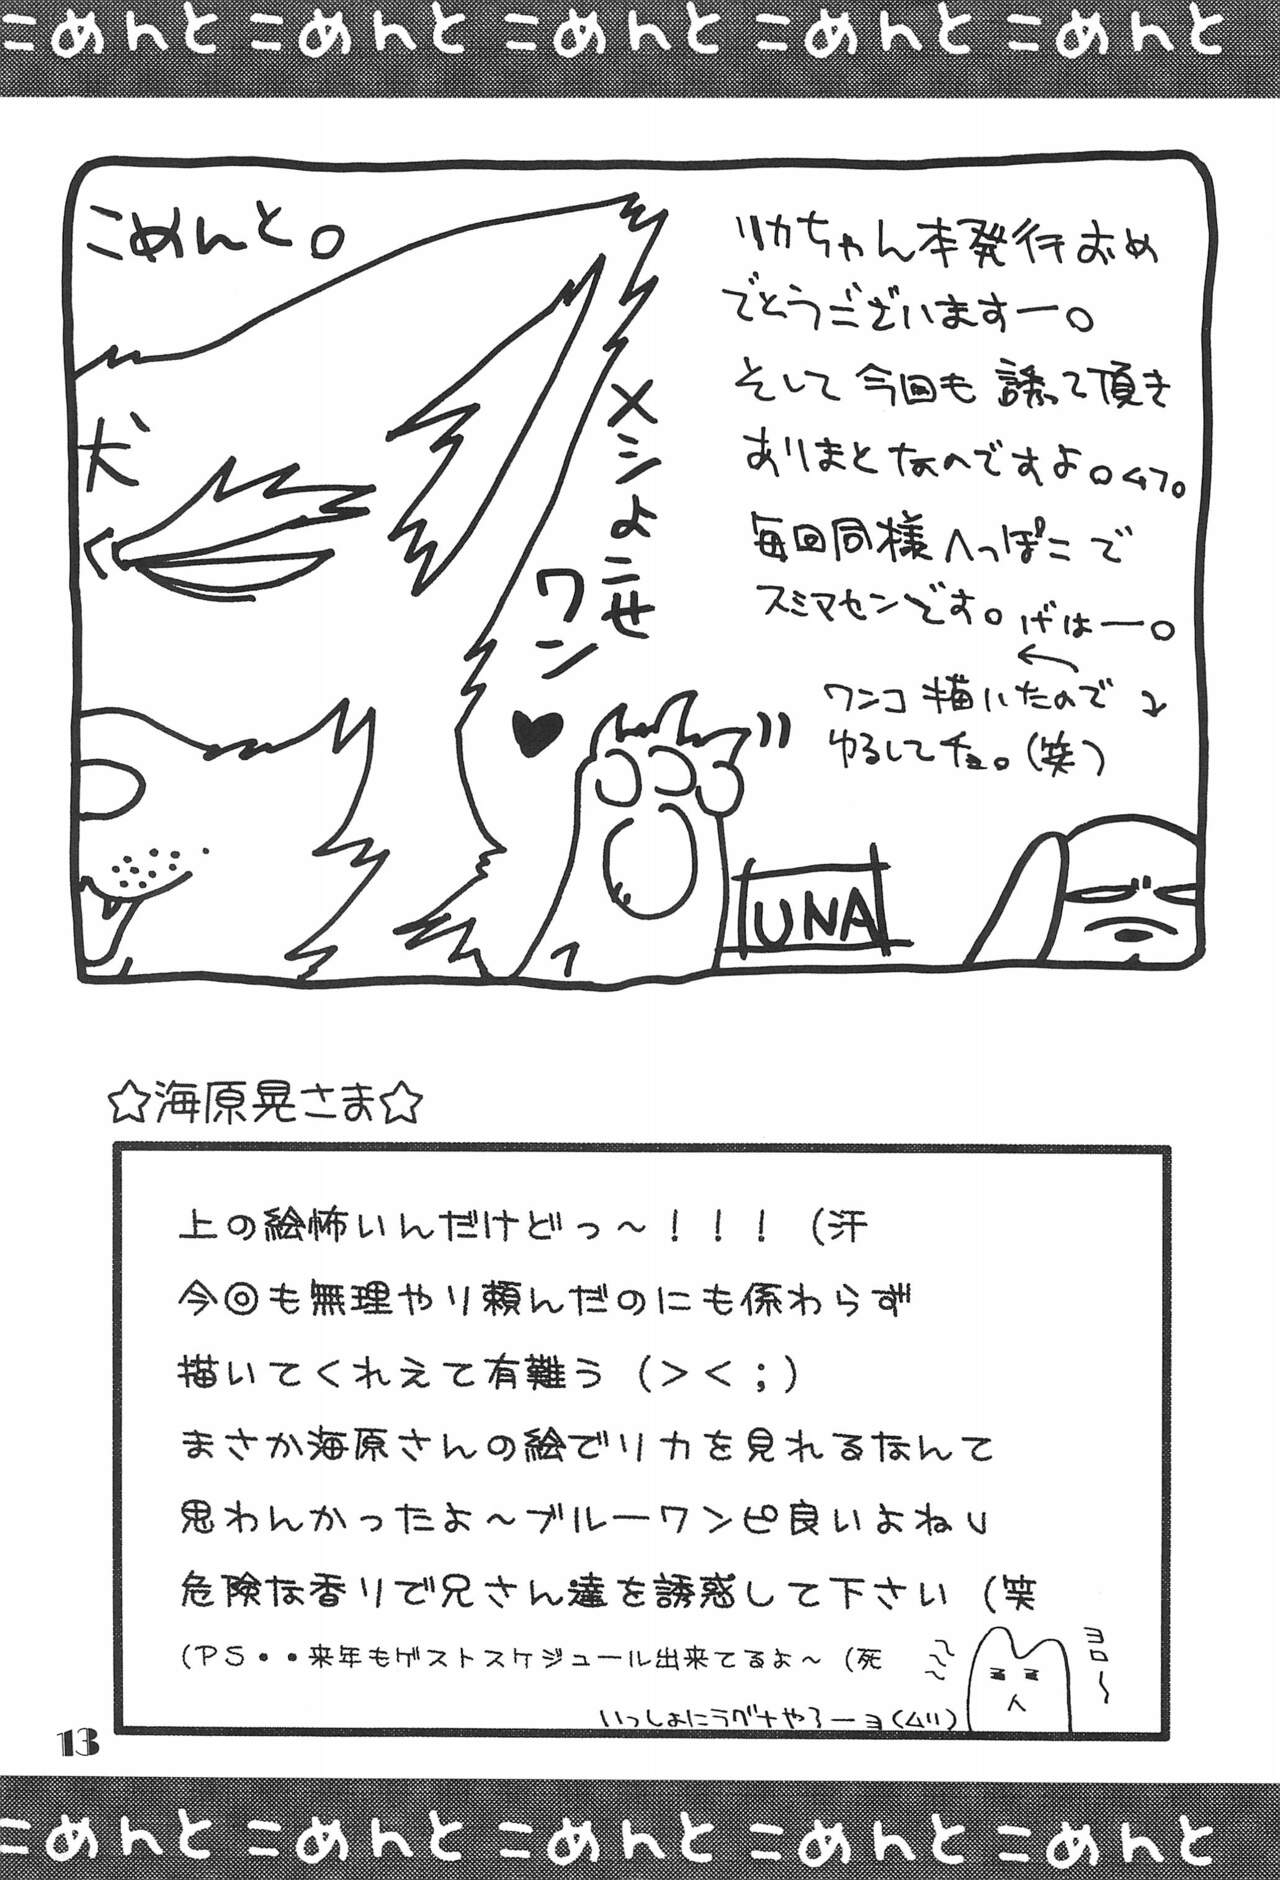 こめんと こめんと こめんと こめんと こめんと
こめんと。
リカちゃん本発行おめ
でとうございますー。
そして今回も誘って頂き
ありまとなのですよ。ムフ。
毎回同様へっぽこで
スミマセンです。げはー。
ワンコ描いたので
ゆるしてチョ。(笑)
犬
メシよこせ
ワン
UNA
☆海原晃さま☆
上の絵怖いんだけどっ～！！！(汗
今回も無理やり頼んだのにも係わらず
描いてくれえて有難う(＞＜；)
まさか海原さんの絵でリカを見れるなんて
思わんかったよ～ブルーワンピ良いよね
危険な香りで兄さん達を誘惑して下さい(笑
(PS・・来年もゲストスケジュール出来てるよ～(死
ヨロ～
いっしょにラグナやろーヨ(ムリ)
13
こめんと こめんと こめんと こめんと こめんと